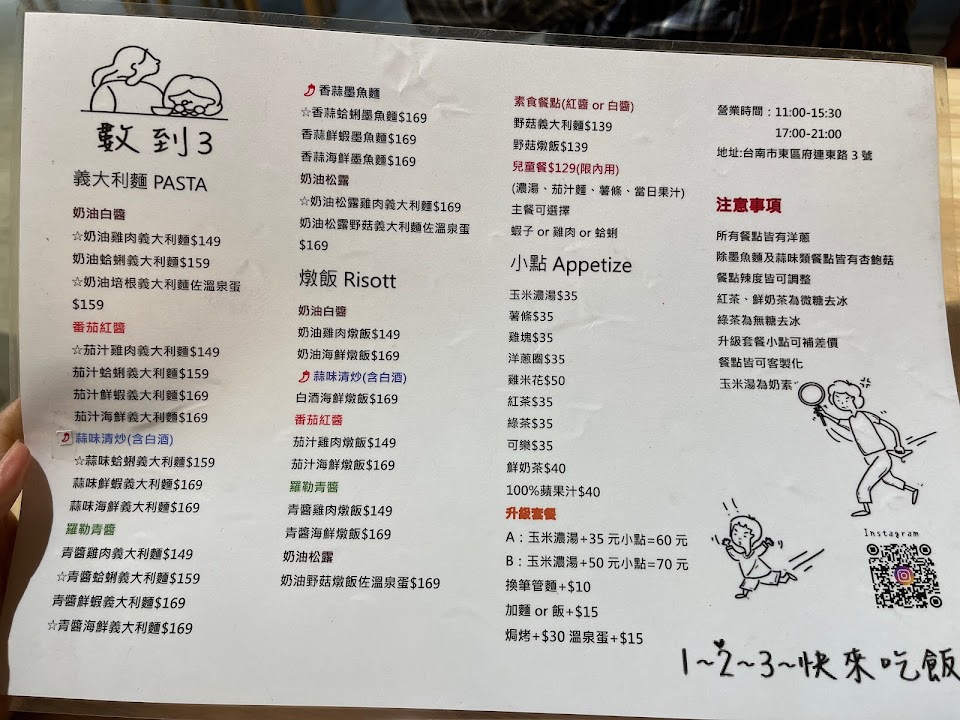 數到3
義大利麵 PASTA
奶油白醬
☆奶油雞肉義大利麵$149
奶油蛤蜊義大利麵$159
☆奶油培根義大利麵佐溫泉蛋
$159
番茄紅醬
☆茄汁雞肉義大利麵$149
茄汁蛤蜊義大利麵$159
茄汁鮮蝦義大利麵$169
茄汁海鮮義大利麵$169
蒜味清炒(含白酒)
☆蒜味蛤蜊義大利麵$159
蒜味鮮蝦義大利麵$169
蒜味海鮮義大利麵$169
羅勒青醬
青醬雞肉義大利麵$149
☆青醬蛤蜊義大利麵$159
青醬鮮蝦義大利麵$169
☆青醬海鮮義大利麵$169
香蒜墨魚麵
☆香蒜蛤蜊墨魚麵$169
香蒜鮮蝦墨魚麵$169
香蒜海鮮墨魚麵$169
奶油松露
☆奶油松露雞肉義大利麵$169
奶油松露野菇義大利麵佐溫泉蛋
$169
燉飯 Risott
奶油白醬
奶油雞肉燉飯$149
奶油海鮮燉飯$169
蒜味清炒(含白酒)
白酒海鮮燉飯$169
番茄紅醬
茄汁雞肉燉飯$149
茄汁海鮮燉飯$169
羅勒青醬
青醬雞肉燉飯$149
青醬海鮮燉飯$169
奶油松露
奶油野菇燉飯佐溫泉蛋$169
素食餐點(紅醬 or 白醬)
野菇義大利麵$139
野菇燉飯$139
兒童餐$129(限內用)
(濃湯、茄汁麵、薯條、當日果汁)
主餐可選擇
蝦子 or 雞肉 or 蛤蜊
小點 Appetize
玉米濃湯$35
薯條$35
雞塊$35
洋蔥圈$35
雞米花$50
紅茶$35
綠茶$35
可樂$35
鮮奶茶$40
100%蘋果汁$40
升級套餐
A：玉米濃湯+35 元小點=60 元
B：玉米濃湯+50 元小點=70 元
換筆管麵+$10
加麵 or 飯+$15
焗烤+$30 溫泉蛋+$15
營業時間：11:00-15:30
17:00-21:00
地址:台南市東區府連東路 3 號
注意事項
所有餐點皆有洋蔥
除墨魚麵及蒜味類餐點皆有杏鮑菇
餐點辣度皆可調整
紅茶、鮮奶茶為微糖去冰
綠茶為無糖去冰
升級套餐小點可補差價
餐點皆可客製化
玉米湯為奶素
Instagram
1~2~3~快來吃飯